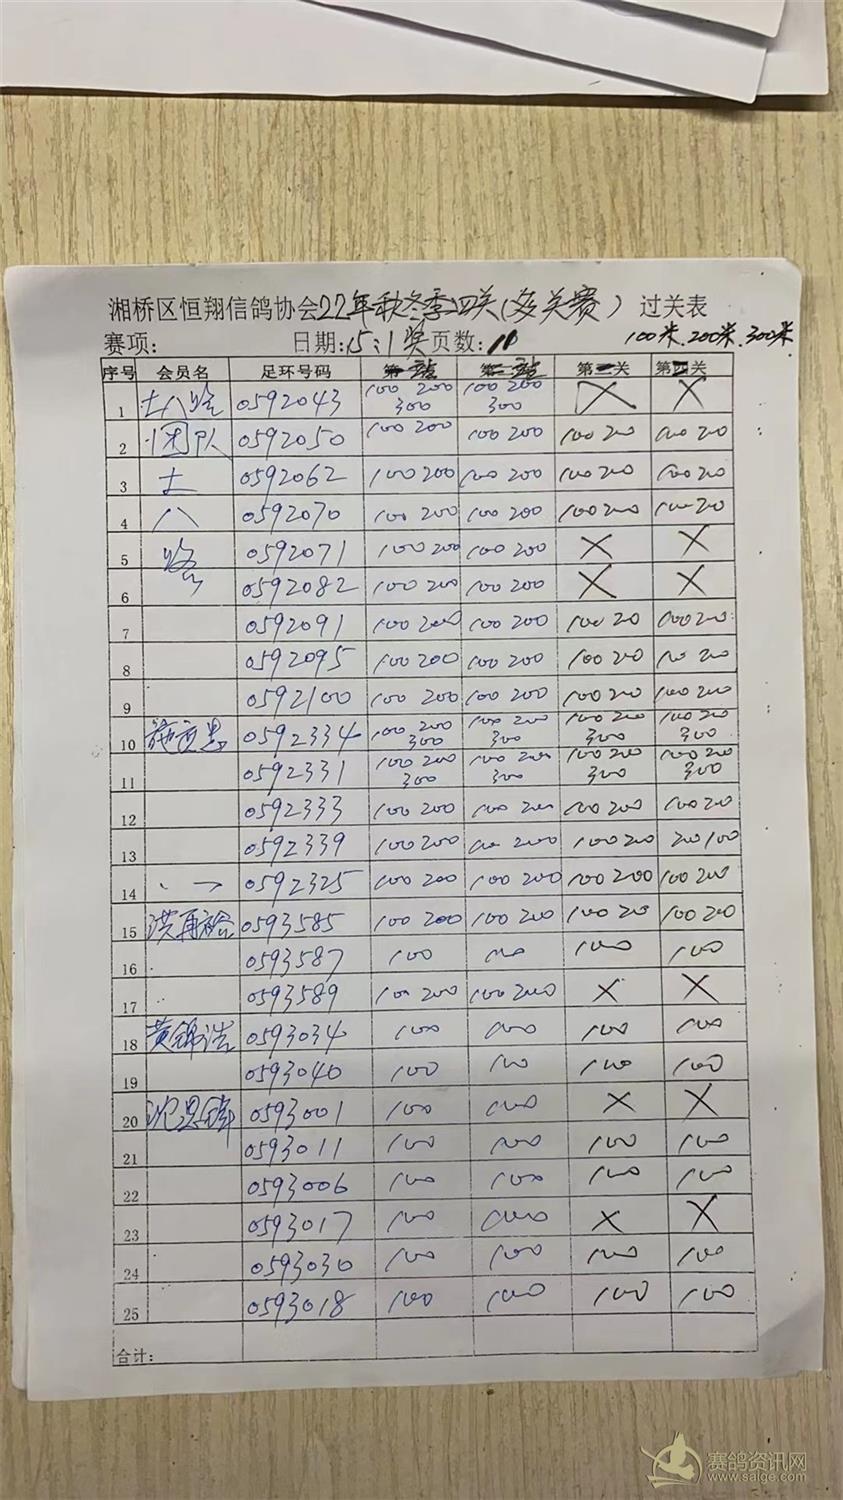 湘桥区恒翔信鸽协会22年秋冬季四关(多关赛) 过关表
赛项: 日期:15:1奖页数:11 100米.200米.300米
序号 会员名 足环号码 第一 第二 第三关 第四关
1 士八路 0592043 100 200 300 100 200 300 X X
2 团队 0592050 100 200 100 200 100 200 100 200
3 士 0592062 100 200 100 200 100 200 100 200
4 八 0592070 100 200 100 200 100 200 100 200
5 路 0592071 100 200 100 200 X X
6 0592082 100 200 100 200 X X
7 0592091 100 200 100 200 100 200 100 200
8 0592095 100 200 100 200 100 200 100 200
9 0592100 100 200 100 200 100 200 100 200
10 0592334 100 200 300 100 200 300 100 200 300 100 200 300
11 0592331 100 200 300 100 200 300 100 200 300 100 200 300
12 0592333 100 200 100 200 100 200 100 200
13 0592339 100 200 100 200 100 200 200 100
14 0592325 100 200 100 200 100 200 100 200
15 洪再裕 0593585 100 200 100 200 100 200 100 200
16 0593587 100 100 100 100
17 0593589 100 200 100 200 X X
18 黄锦浩 0593034 100 100 100 100
19 0593040 100 100 100 100
20 0593001 100 100 X X
21 0593011 100 100 100 100
22 0593006 100 100 100 100
23 0593017 100 100 X X
24 0593030 100 100 100 100
25 0593018 100 100 100 100
合计:
赛鸽资讯网
www.saige.com